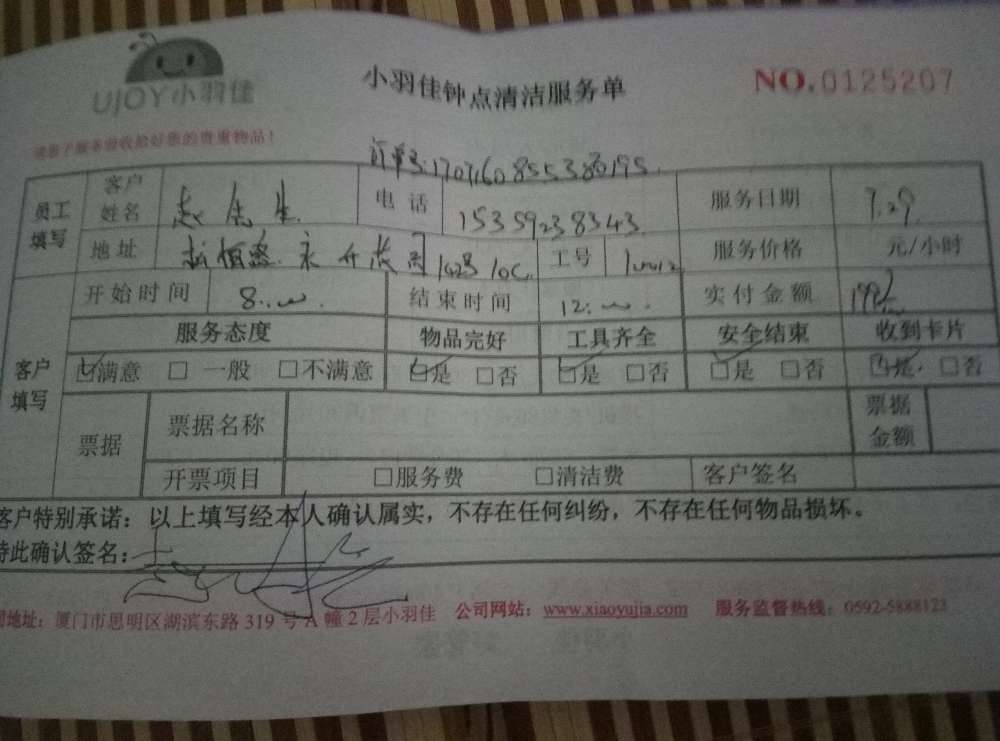 UJOY小羽佳
小羽佳钟点清洁服务单
NO.0125207
员工填写
客户姓名
赵先生
电话
15359238343
服务日期
7.29
地址
工号
服务价格
元/小时
客户填写
开始时间
8:00
结束时间
12:00
实付金额
服务态度
物品完好
工具齐全
安全结束
收到卡片
☑满意 □一般 □不满意
☑是 □否
☑是 □否
□是 □否
☑是 □否
票据
票据名称
票据金额
开票项目
□服务费 □清洁费
客户签名
客户特别承诺：以上填写经本人确认属实，不存在任何纠纷，不存在任何物品损坏。
特此确认签名：
地址：厦门市思明区湖滨东路 319 号 A 幢 2 层小羽佳 公司网站：www.xiaoyujia.com 服务监督热线：0592-5888123